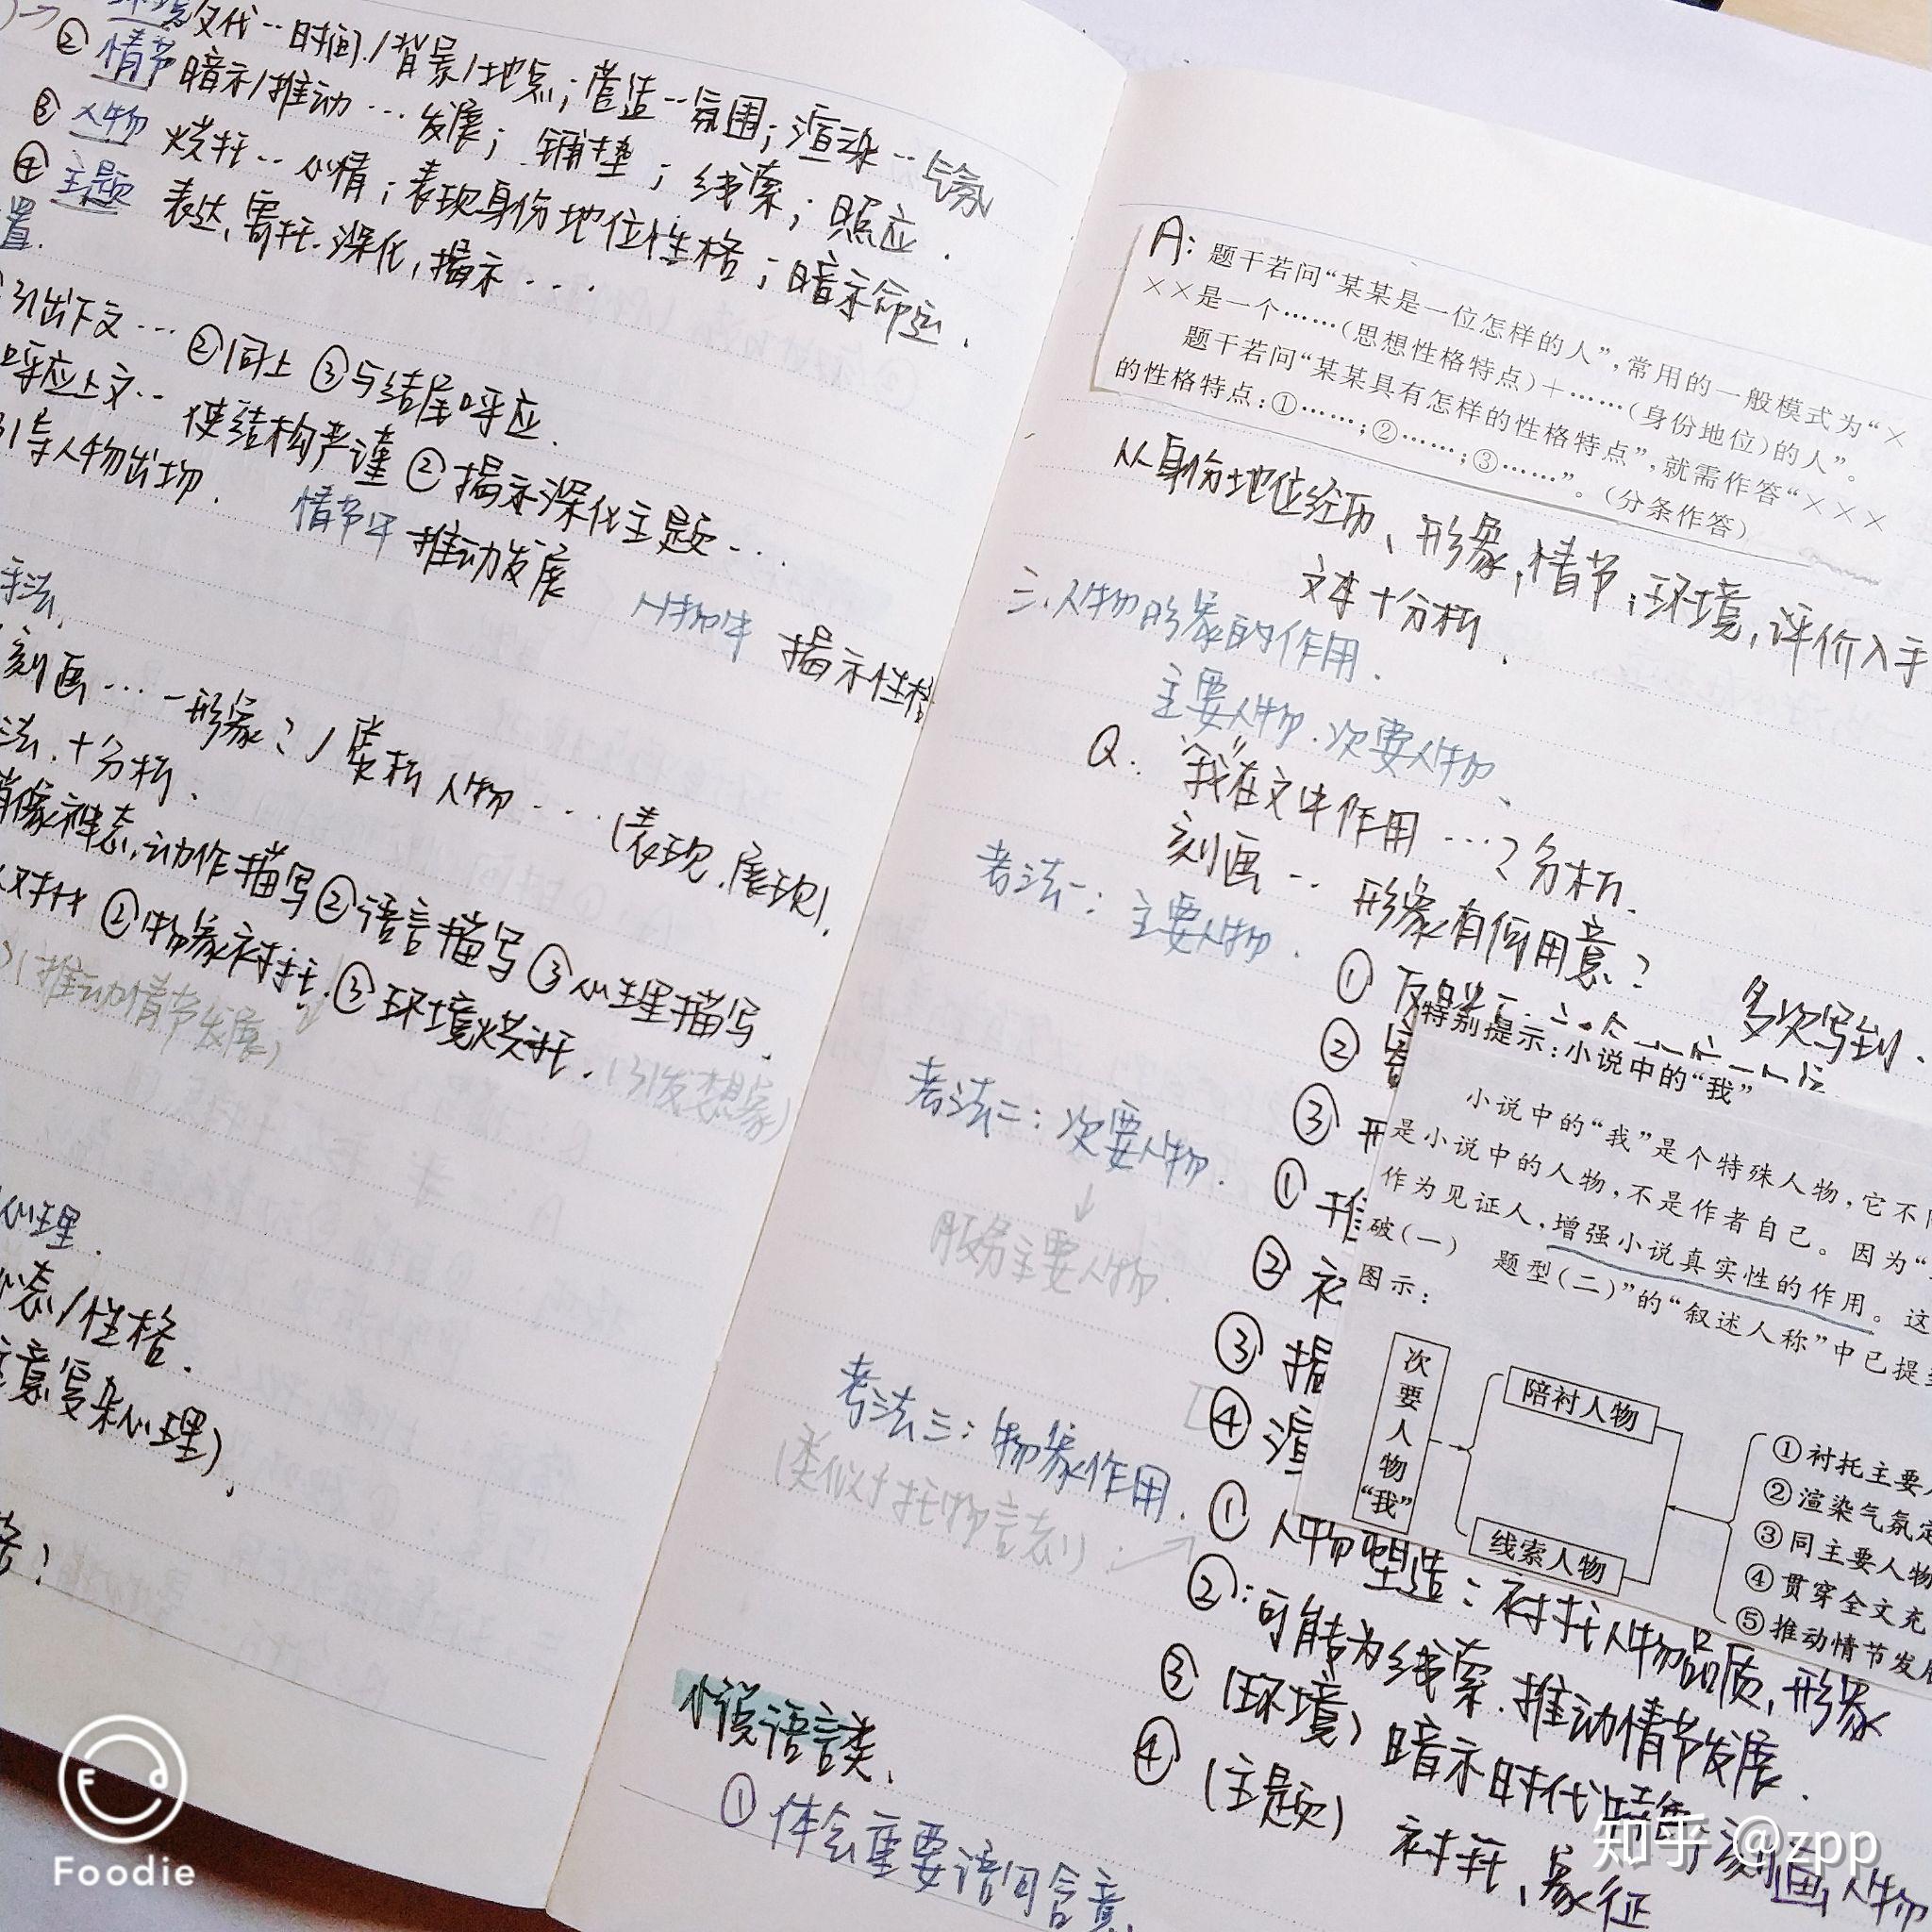 环境 交代…时间/背景/地点；营造…氛围；渲染…气氛
② 情节 暗示/推动…发展；铺垫；线索；照应．
③ 人物 烘托…心情；表现身份地位性格；暗示命运．
④ 主题 表达、寄托、深化，揭示…
置．
引出下文…②同上 ③与结尾呼应．
呼应上文…使结构严谨 ②揭示深化主题…
引导人物出场．
情节中 推动发展
人物中 揭示性格
手法．
刻画…一形象？/赏析人物…（表现、展现）．
法．+分析．
肖像神态，动作描写②语言描写③心理描写．
对比②物象衬托．③环境烘托．
（推动情节发展）
（引发想象）
心理．
心态/性格．
注意复杂心理）．
A：题干若问“某某是一位怎样的人”，常用的一般模式为“×
××是一个……(思想性格特点)＋……(身份地位)的人”。
题干若问“某某具有怎样的性格特点”，就需作答“×××
的性格特点：①……；②……；③……”。(分条作答)
从身份地位经历、形象，情节；环境，评价入手
文本+分析．
三．人物形象的作用．
主要人物．次要人物、
Q：“我”在文中作用…？分析．
刻画…形象有何用意？ 多次写到．
考法一：主要人物．
①
②
③
特别提示：小说中的“我”
小说中的“我”是个特殊人物，它不
是小说中的人物，不是作者自己。因为“
作为见证人，增强小说真实性的作用。这
破(一) 题型(二)”的“叙述人称”中已提
图示：
考法二：次要人物．
↓
服务主要人物．
① 推
②
③ 揭
④ 渲
次要人物“我”
陪衬人物
线索人物
①衬托主要
②渲染气氛
③同主要人物
④贯穿全文充
⑤推动情节发
考法三：物象作用．
（类似于托物言志）．→
① 人物塑造：衬托人物品质，形象
②：可能为线索．推动情节发展．
③（环境）暗示时代 刻画人物
④（主题）衬托、象征
小说语言类．
① 体会重要语句含意．
Foodie
知乎 @zpp